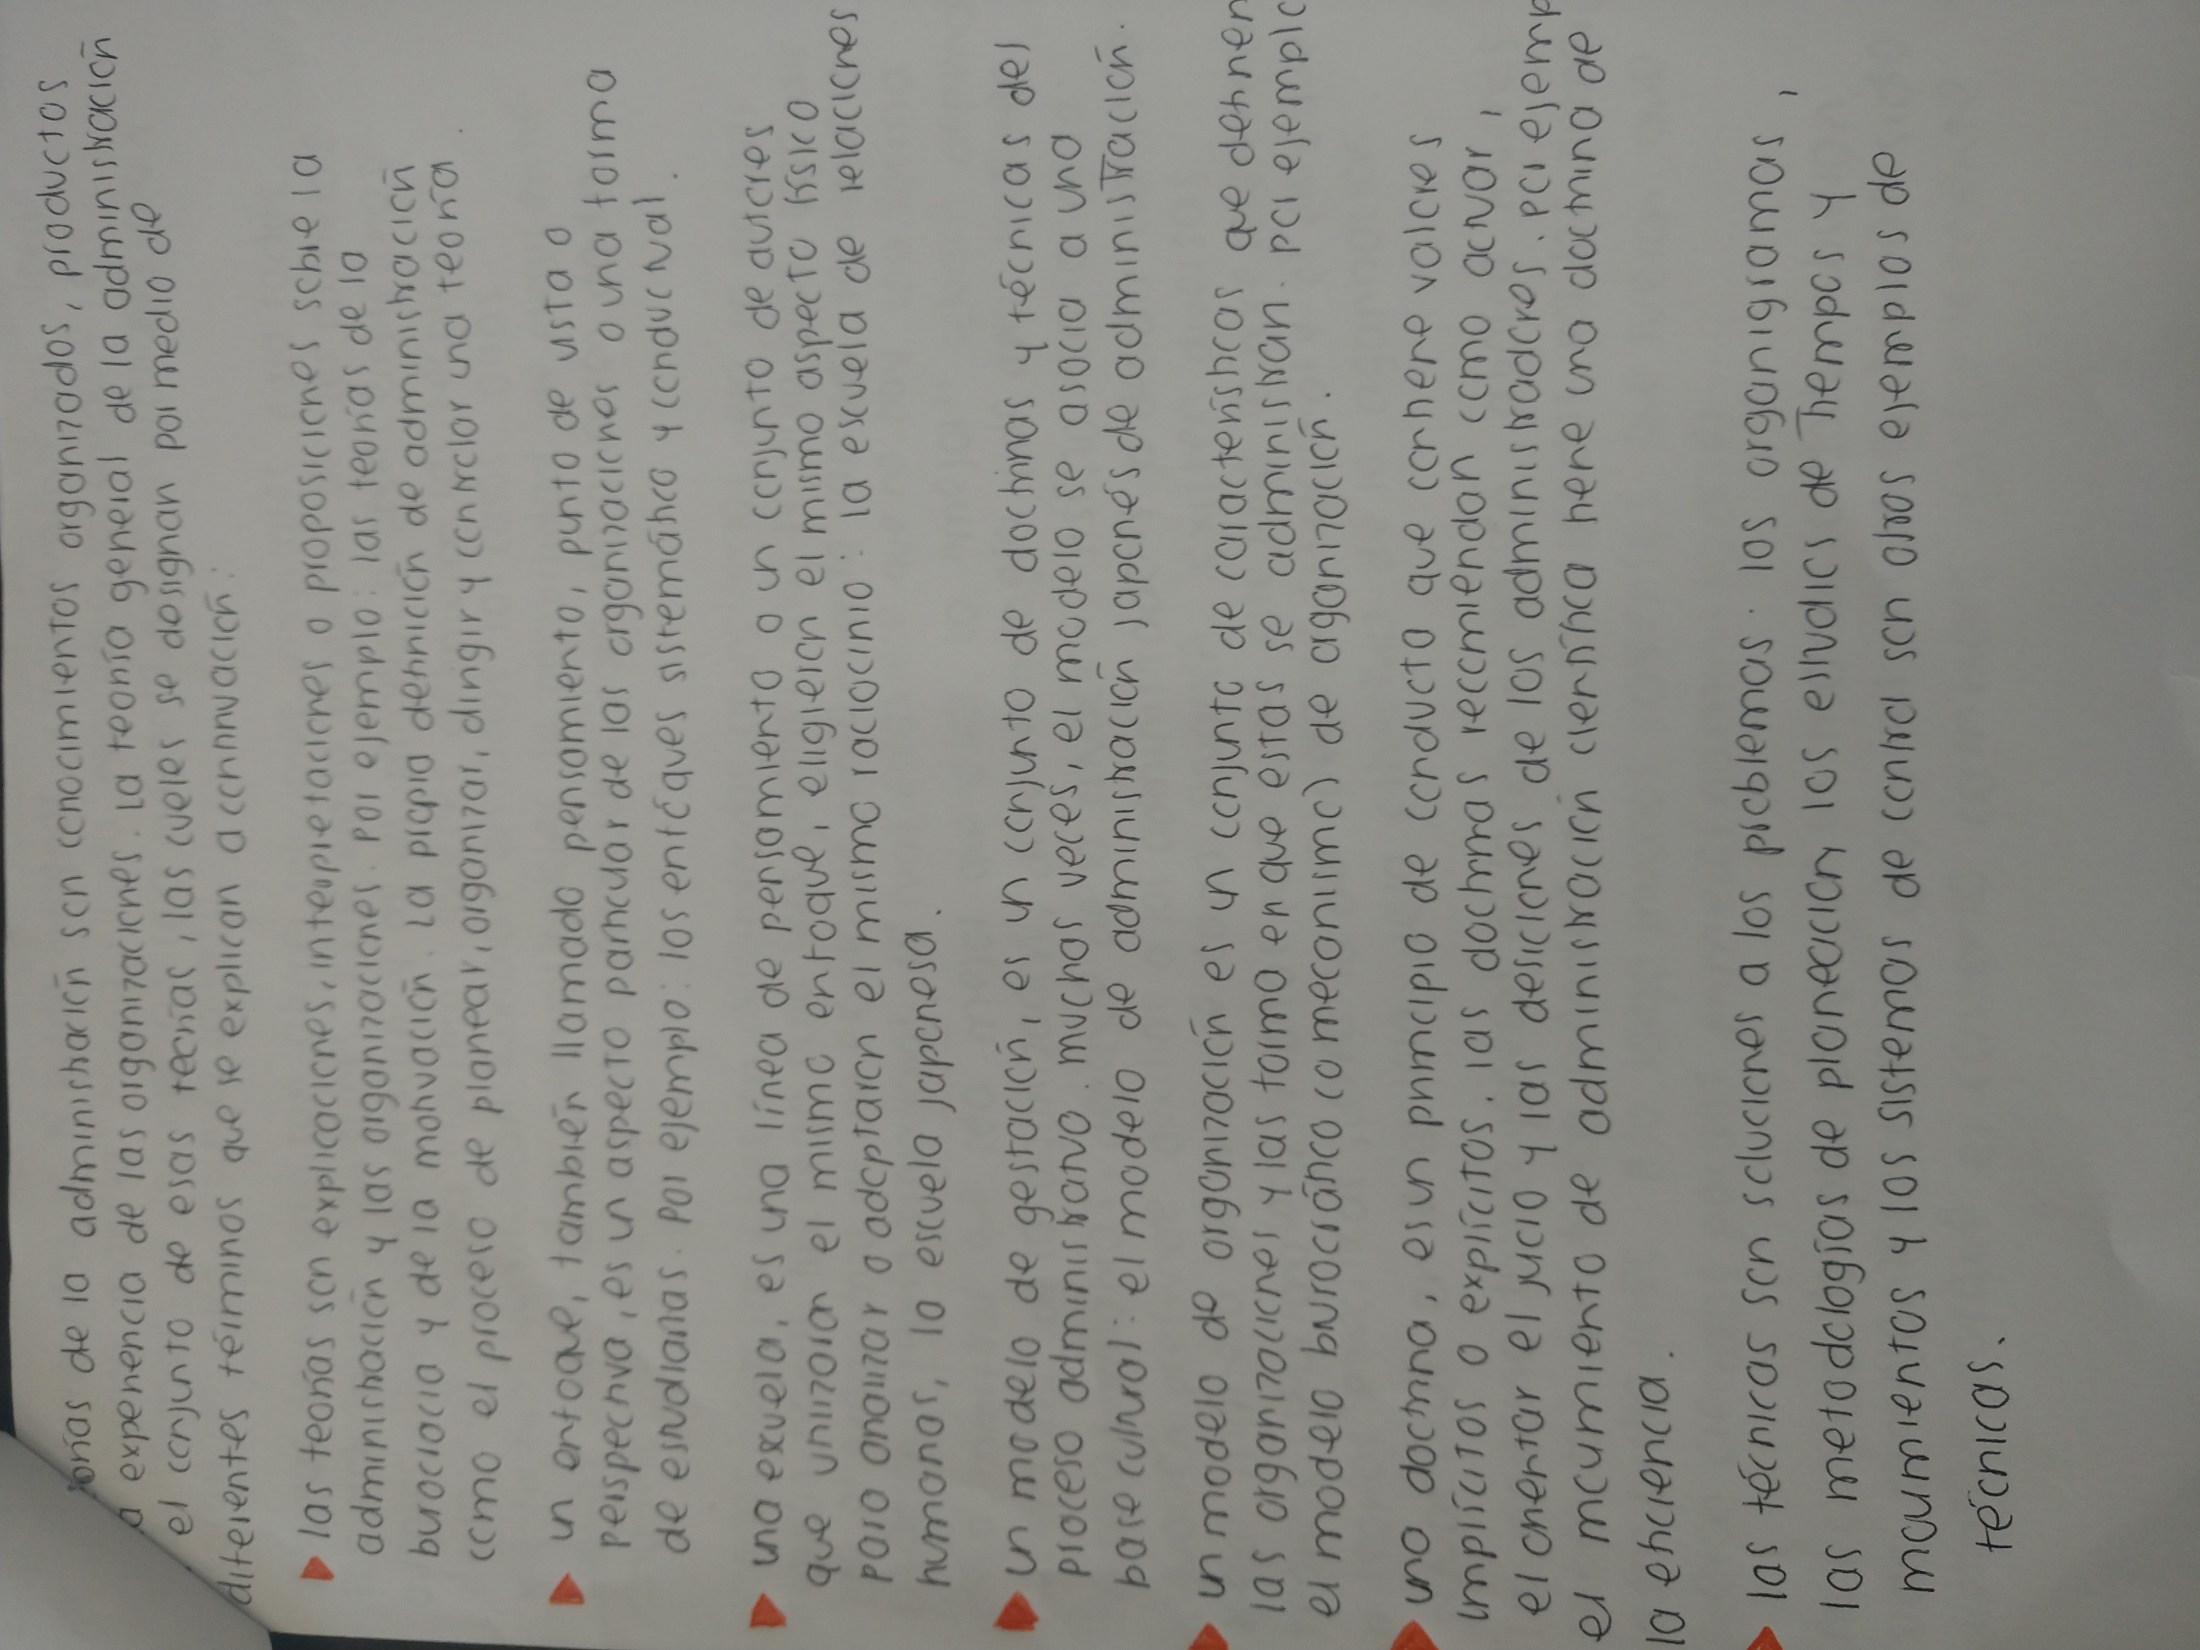 de la administración son conocimientos organizados, productos
experiencia de las organizaciones. la teoría general de la administración
el conjunto de esas teorías, las cueles se dosignan por medio de
diferentes términos que se explican a continuación:
las teorías son explicaciones, interpretaciones o proposiciones sobre la
administración y las organizaciones. por ejemplo: las teorías de la
burocracia y de la motivación. la propia definición de administración
como el proceso de planear, organizar, dirigir y controlar una teoría.
un enfoque, también llamado pensamiento, punto de vista o
perspectiva, es un aspecto particular de las organizaciones o una forma
de estudiarlas. por ejemplo: los enfoques sistemático y conductual.
una escuela, es una línea de pensamiento o un conjunto de autores
que utilizaron el mismo enfoque, eligieron el mismo aspecto físico
para analizar o adoptaron el mismo raciocinio: la escuela de relaciones
humanas, la escuela japonesa.
un modelo de gestación, es un conjunto de doctrinas y técnicas del
proceso administrativo. muchas veces, el modelo se asocia a una
base cultural: el modelo de administración japonés de administración.
un modelo de organización es un conjunto de características que definen
las organizaciones y las forma en que estas se administran. por ejemplo
el modelo burocrático (o mecanismo) de organización.
una doctrina, es un principio de conducta que contiene valores
implícitos o explícitos. las doctrinas recomiendan como actuar,
el orientar el juicio y las desiciones de los administradores. por ejemp
el movimiento de administración científica tiene una doctrina de
la eficiencia.
las técnicas son soluciones a los problemas. los organigramas,
las metodologías de planeación los estudios de tiempos y
movimientos y los sistemas de control son otros ejemplos de
técnicas.